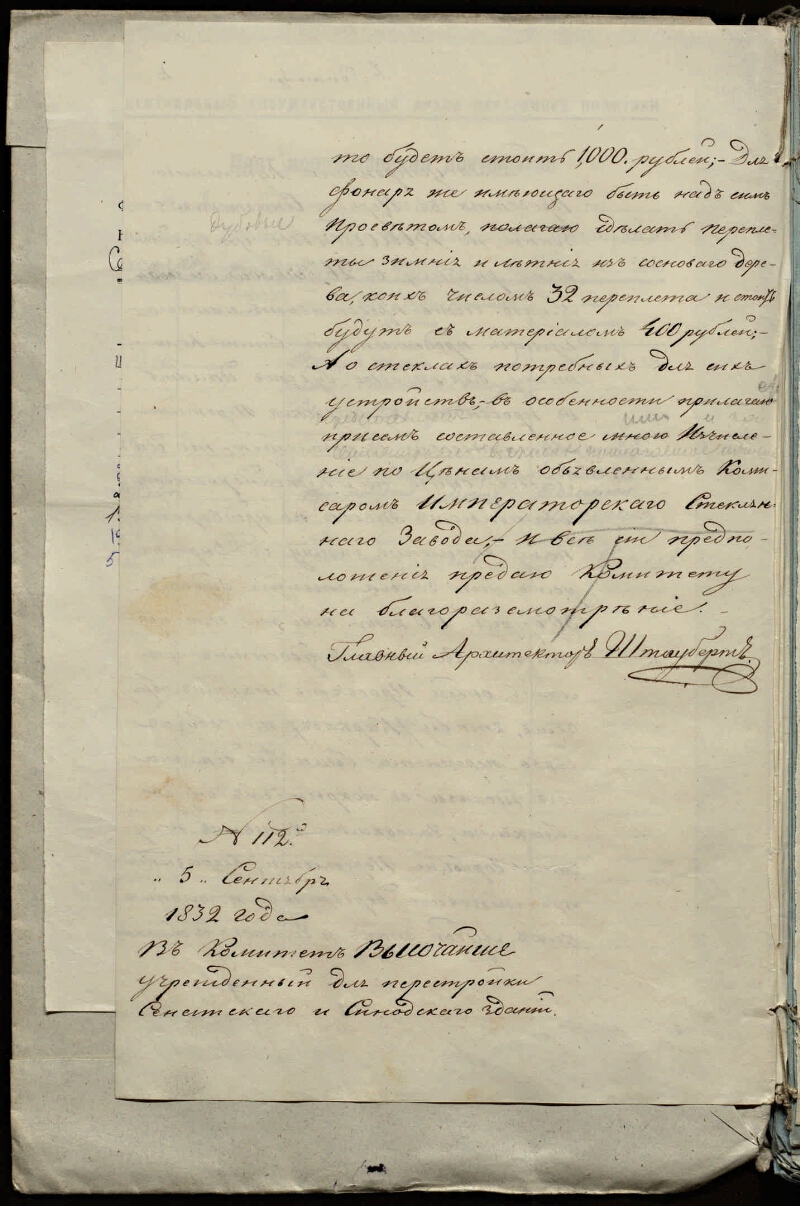 то будетъ стоить 1,000. рублей;- Для
фонаря же имѣющаго быть надъ симъ
дубовые
Просвѣтомъ, полагаю сдѣлать перепле-
ты зимніе и лѣтніе изъ сосноваго дере-
ва, коихъ числомъ 32 переплета и стоить
будутъ съ матеріаломъ 400 рублей;-
А о стеклахъ потребныхъ для сихъ
устройствъ,- въ особенности прилагаю
присемъ составленное мною Изчисле-
ніе по Цѣнамъ объявленнымъ Коми-
саромъ Императорскаго Стеклян-
наго Завода;- и всѣ сіи предпо-
ложенія предаю Комитету
на благоразсмотрѣніе.
Главный Архитекторъ Штаубертъ.
N 112.
" 5 " Сентября
1832 года
Въ Комитетъ Высочайше
учрежденный для перестройки
Сенатскаго и Синодскаго зданій.